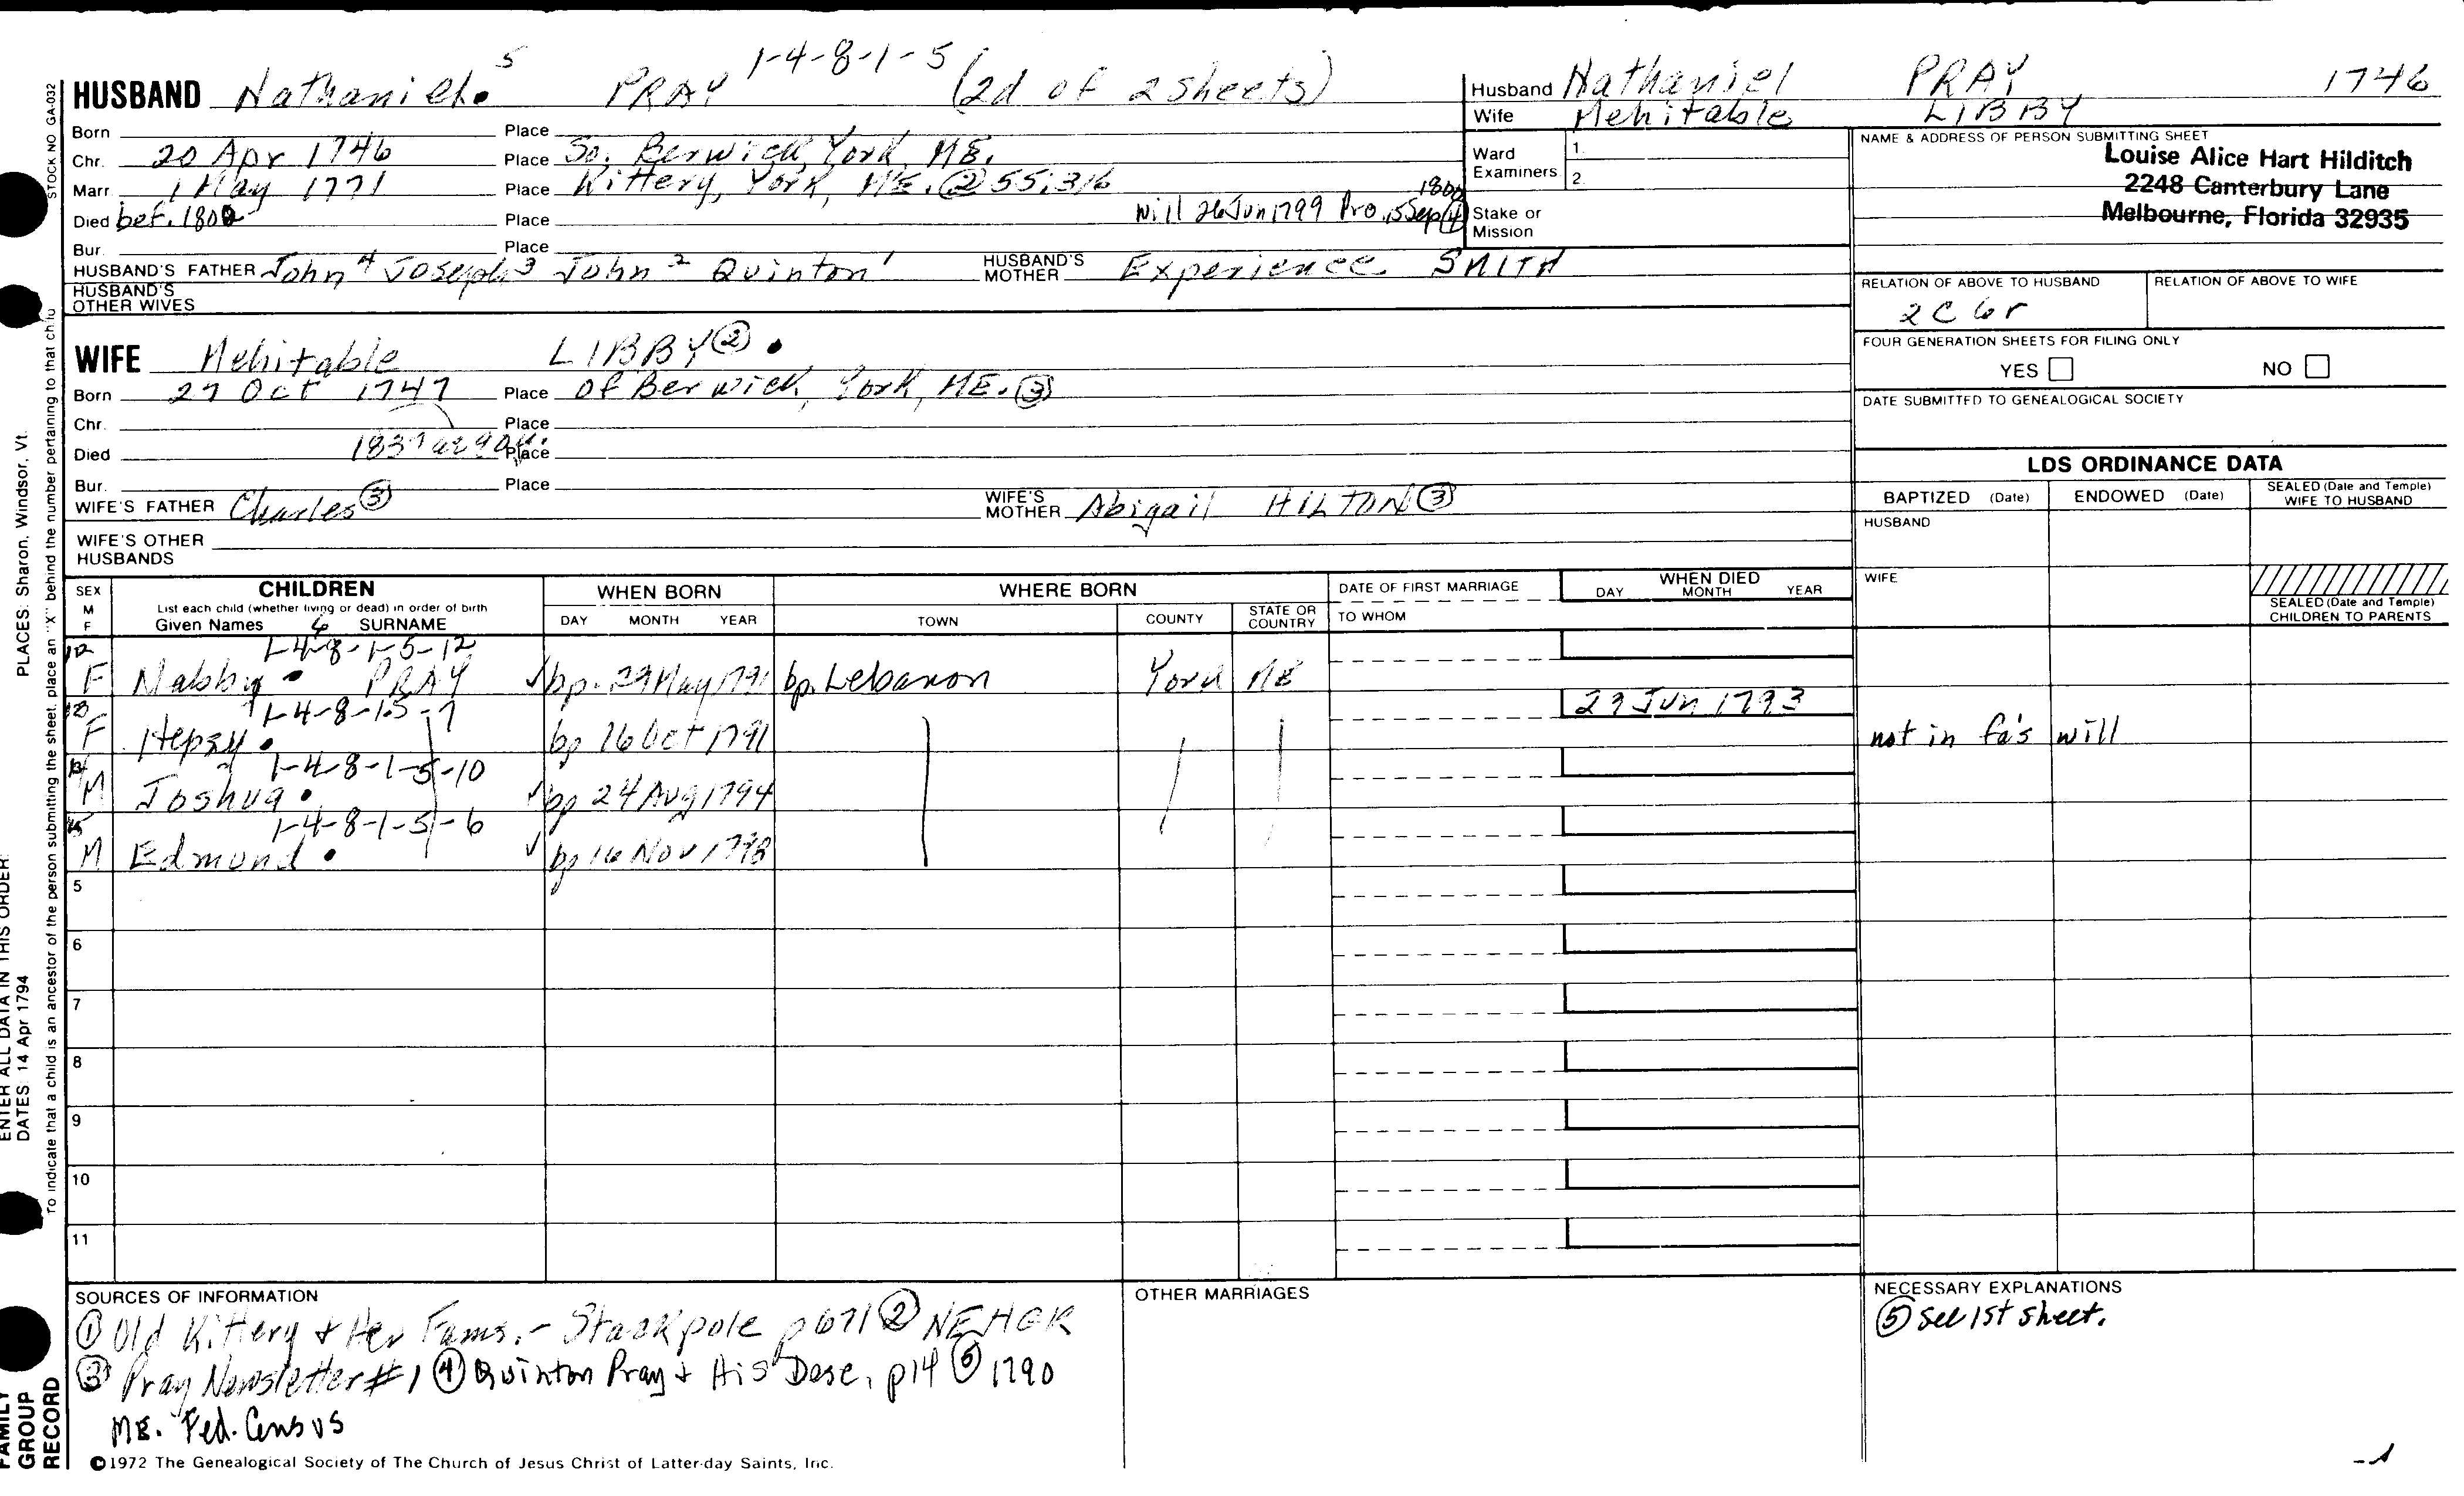 1-4-8-1-5
HUSBAND Nathaniel 5 PRAY (2d of 2 sheets)
Born Place
Chr. 20 Apr 1746 Place So. Berwick, York, ME.
Marr 1 May 1771 Place Kittery, York, ME. ② 55:316
Died bef. 1800 Place Will 26 Jun 1799 Pro. 15 Sep 1800 ④
Bur. Place
HUSBAND'S FATHER John 4 Joseph 3 John 2 Quinton 1 HUSBAND'S MOTHER Experience SMITH
HUSBAND'S OTHER WIVES
Husband Nathaniel PRAY 1746
Wife Mehitable LIBBY
Ward Examiners 1. 2.
Stake or Mission
NAME & ADDRESS OF PERSON SUBMITTING SHEET
Louise Alice Hart Hilditch
2248 Canterbury Lane
Melbourne, Florida 32935
RELATION OF ABOVE TO HUSBAND RELATION OF ABOVE TO WIFE
2C 6r
FOUR GENERATION SHEETS FOR FILING ONLY
YES NO
DATE SUBMITTED TO GENEALOGICAL SOCIETY
WIFE Mehitable LIBBY ②
Born 27 Oct 1747 Place of Berwick, York, ME. ③
Chr. Place
Died 1837 Place
Bur. Place
WIFE'S FATHER Charles ③ WIFE'S MOTHER Abigail HILTON ③
WIFE'S OTHER HUSBANDS
LDS ORDINANCE DATA
BAPTIZED (Date) ENDOWED (Date) SEALED (Date and Temple) WIFE TO HUSBAND
HUSBAND
WIFE
SEALED (Date and Temple) CHILDREN TO PARENTS
SEX M F CHILDREN WHEN BORN WHERE BORN DATE OF FIRST MARRIAGE WHEN DIED
List each child (whether living or dead) in order of birth
Given Names SURNAME DAY MONTH YEAR TOWN COUNTY STATE OR COUNTRY TO WHOM DAY MONTH YEAR
12 1-4-8-1-5-12
F Nabby PRAY bp. 29 May 1791 bp. Lebanon York ME
13 1-4-8-1-5-7 29 Jun 1793
F Hepsy bp 16 Oct 1791 not in fa's will
1-4-8-1-5-10
M Joshua bp 24 Aug 1794
1-4-8-1-5-6
M Edmund bp 16 Nov 1798
5
6
7
8
9
10
11
SOURCES OF INFORMATION
① Old Kittery & Her Fams. - Stackpole p 671 ② NEHGR
③ Pray Newsletter #1 ④ Quinton Pray & His Desc, p14 ⑤ 1790
ME. Fed. Census
OTHER MARRIAGES
NECESSARY EXPLANATIONS
⑤ See 1st sheet.
©1972 The Genealogical Society of The Church of Jesus Christ of Latter-day Saints, Inc.
STOCK NO GA-032
To indicate that a child is an ancestor of the person submitting the sheet, place an "X" behind the number pertaining to that child
ENTER ALL DATA IN THIS ORDER:
DATES: 14 Apr 1794 PLACES: Sharon, Windsor, Vt.
FAMILY GROUP RECORD